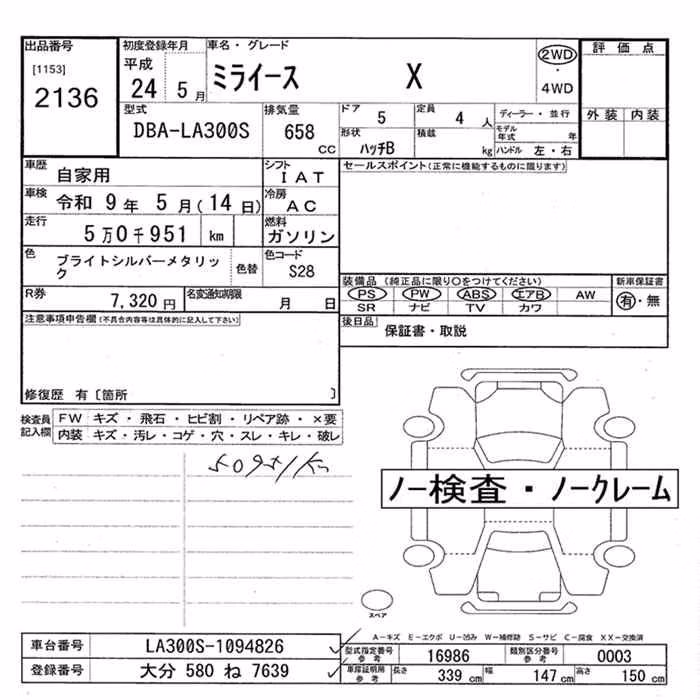 出品番号
[1153]
2136
初度登録年月
平成
24 5月
車名・グレード
ミライース X
2WD
・
4WD
評価点
外装 内装
型式
DBA-LA300S
排気量
658
cc
ドア
5
定員
4 人
ディーラー・並行
形状
ハッチB
積載
kg
モデル年式 年
ハンドル 左・右
車歴
自家用
シフト
IAT
セールスポイント(正常に機能するものに限ります)
車検
令和 9年 5月(14日)
冷房
AC
走行
5万0千951 km
燃料
ガソリン
色
ブライトシルバーメタリック
色替
色コード
S28
装備品 (純正品に限り○をつけてください)
PS PW ABS エアB AW
SR ナビ TV カワ
新車保証書
有・無
R券
7,320円
名変通知期限
月 日
後日品
保証書・取説
注意事項申告欄(不具合内容等は具体的に記入して下さい)
修復歴 有〔箇所 〕
検査員記入欄
FW キズ・飛石・ヒビ割・リペア跡・×要
内装 キズ・汚レ・コゲ・穴・スレ・キレ・破レ
50951km
ノー検査・ノークレーム
スペア
A-キズ E-エクボ U-凹み W-補修跡 S-サビ C-腐食 XX-交換済
車台番号
LA300S-1094826
型式指定番号
参考
16986
類別区分番号
参考
0003
登録番号
大分 580 ね 7639
車庫証明用
参考
長さ 339 cm
幅 147 cm
高さ 150 cm